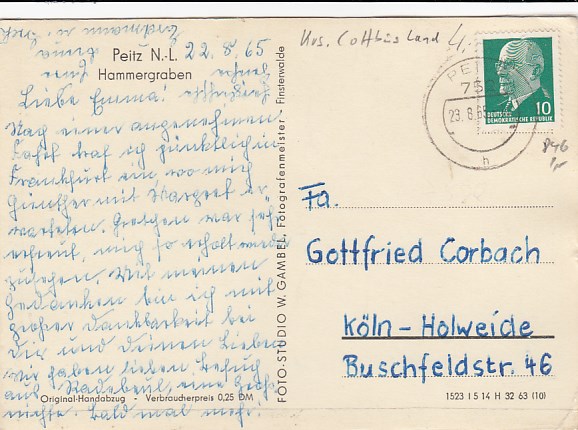 Peitz N.-L. 22.8.65
Hammergraben
Liebe Emma!
Nach einer angenehmen
Fahrt traf ich pünktlich in
Frankfurt ein, wo mich
Günther mit Margret er
warteten. Gretchen war sehr
erfreut, mich so erholt wieder
zusehen. Mit meinen
Gedanken bin ich mit
großer Dankbarkeit bei
Dir und Deinen Lieben.
Wir haben lieben Besuch
aus Radebeul, eine Groß-
nichte. Bald mal mehr!
Original-Handabzug - Verbraucherpreis 0,25 DM
FOTO-STUDIO W. GAMBEL, Fotografenmeister - Finsterwalde
Krs. Cottbus Land
PEITZ
23.8.65
h
10
DEUTSCHE
DEMOKRATISCHE REPUBLIK
846
Fa.
Gottfried Corbach
Köln-Holweide
Buschfeldstr. 46
1523 I 5 14 H 32 63 (10)